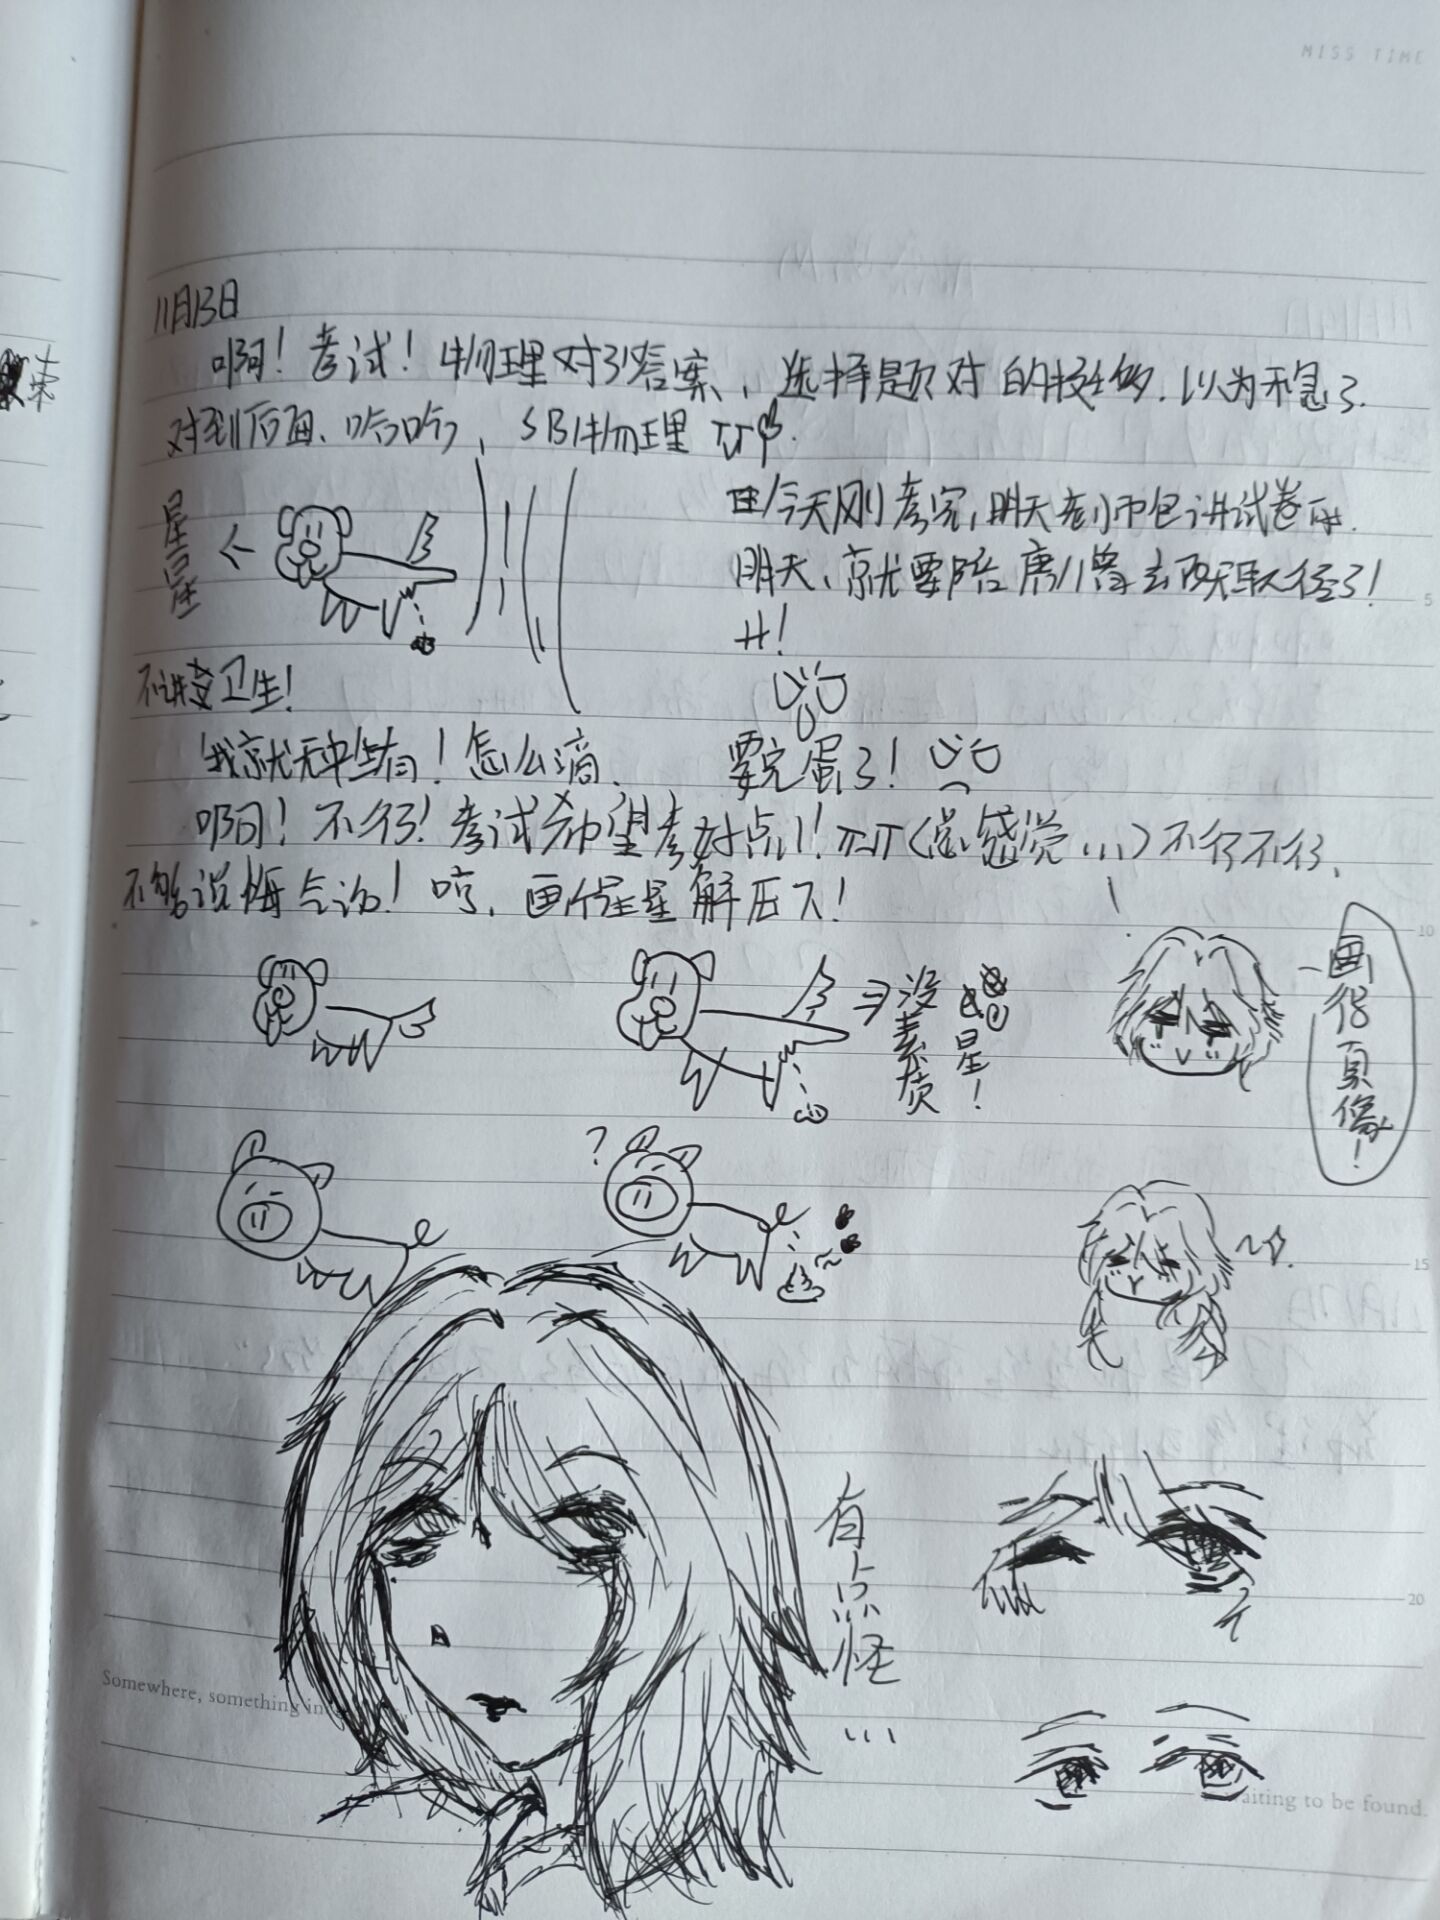 MISS TIME
11月13日
啊！考试！物理对了答案，选择题对的挺多，以为稳了
对到后面、哈哈，SB物理 TT
星星
今天刚考完，明天老师也讲试卷
明天、就要陪唐
去
了！
不讲卫生！
我就无中生有！怎么滴、
要完蛋了！
啊！不行！考试希望考好点！TT（总感觉...）不行不行、
不能说晦气话！哼、画个星星解压下！
没素质
星！
画得真像！
?
有点怪
...
5
10
15
20
Somewhere, something in
waiting to be found.